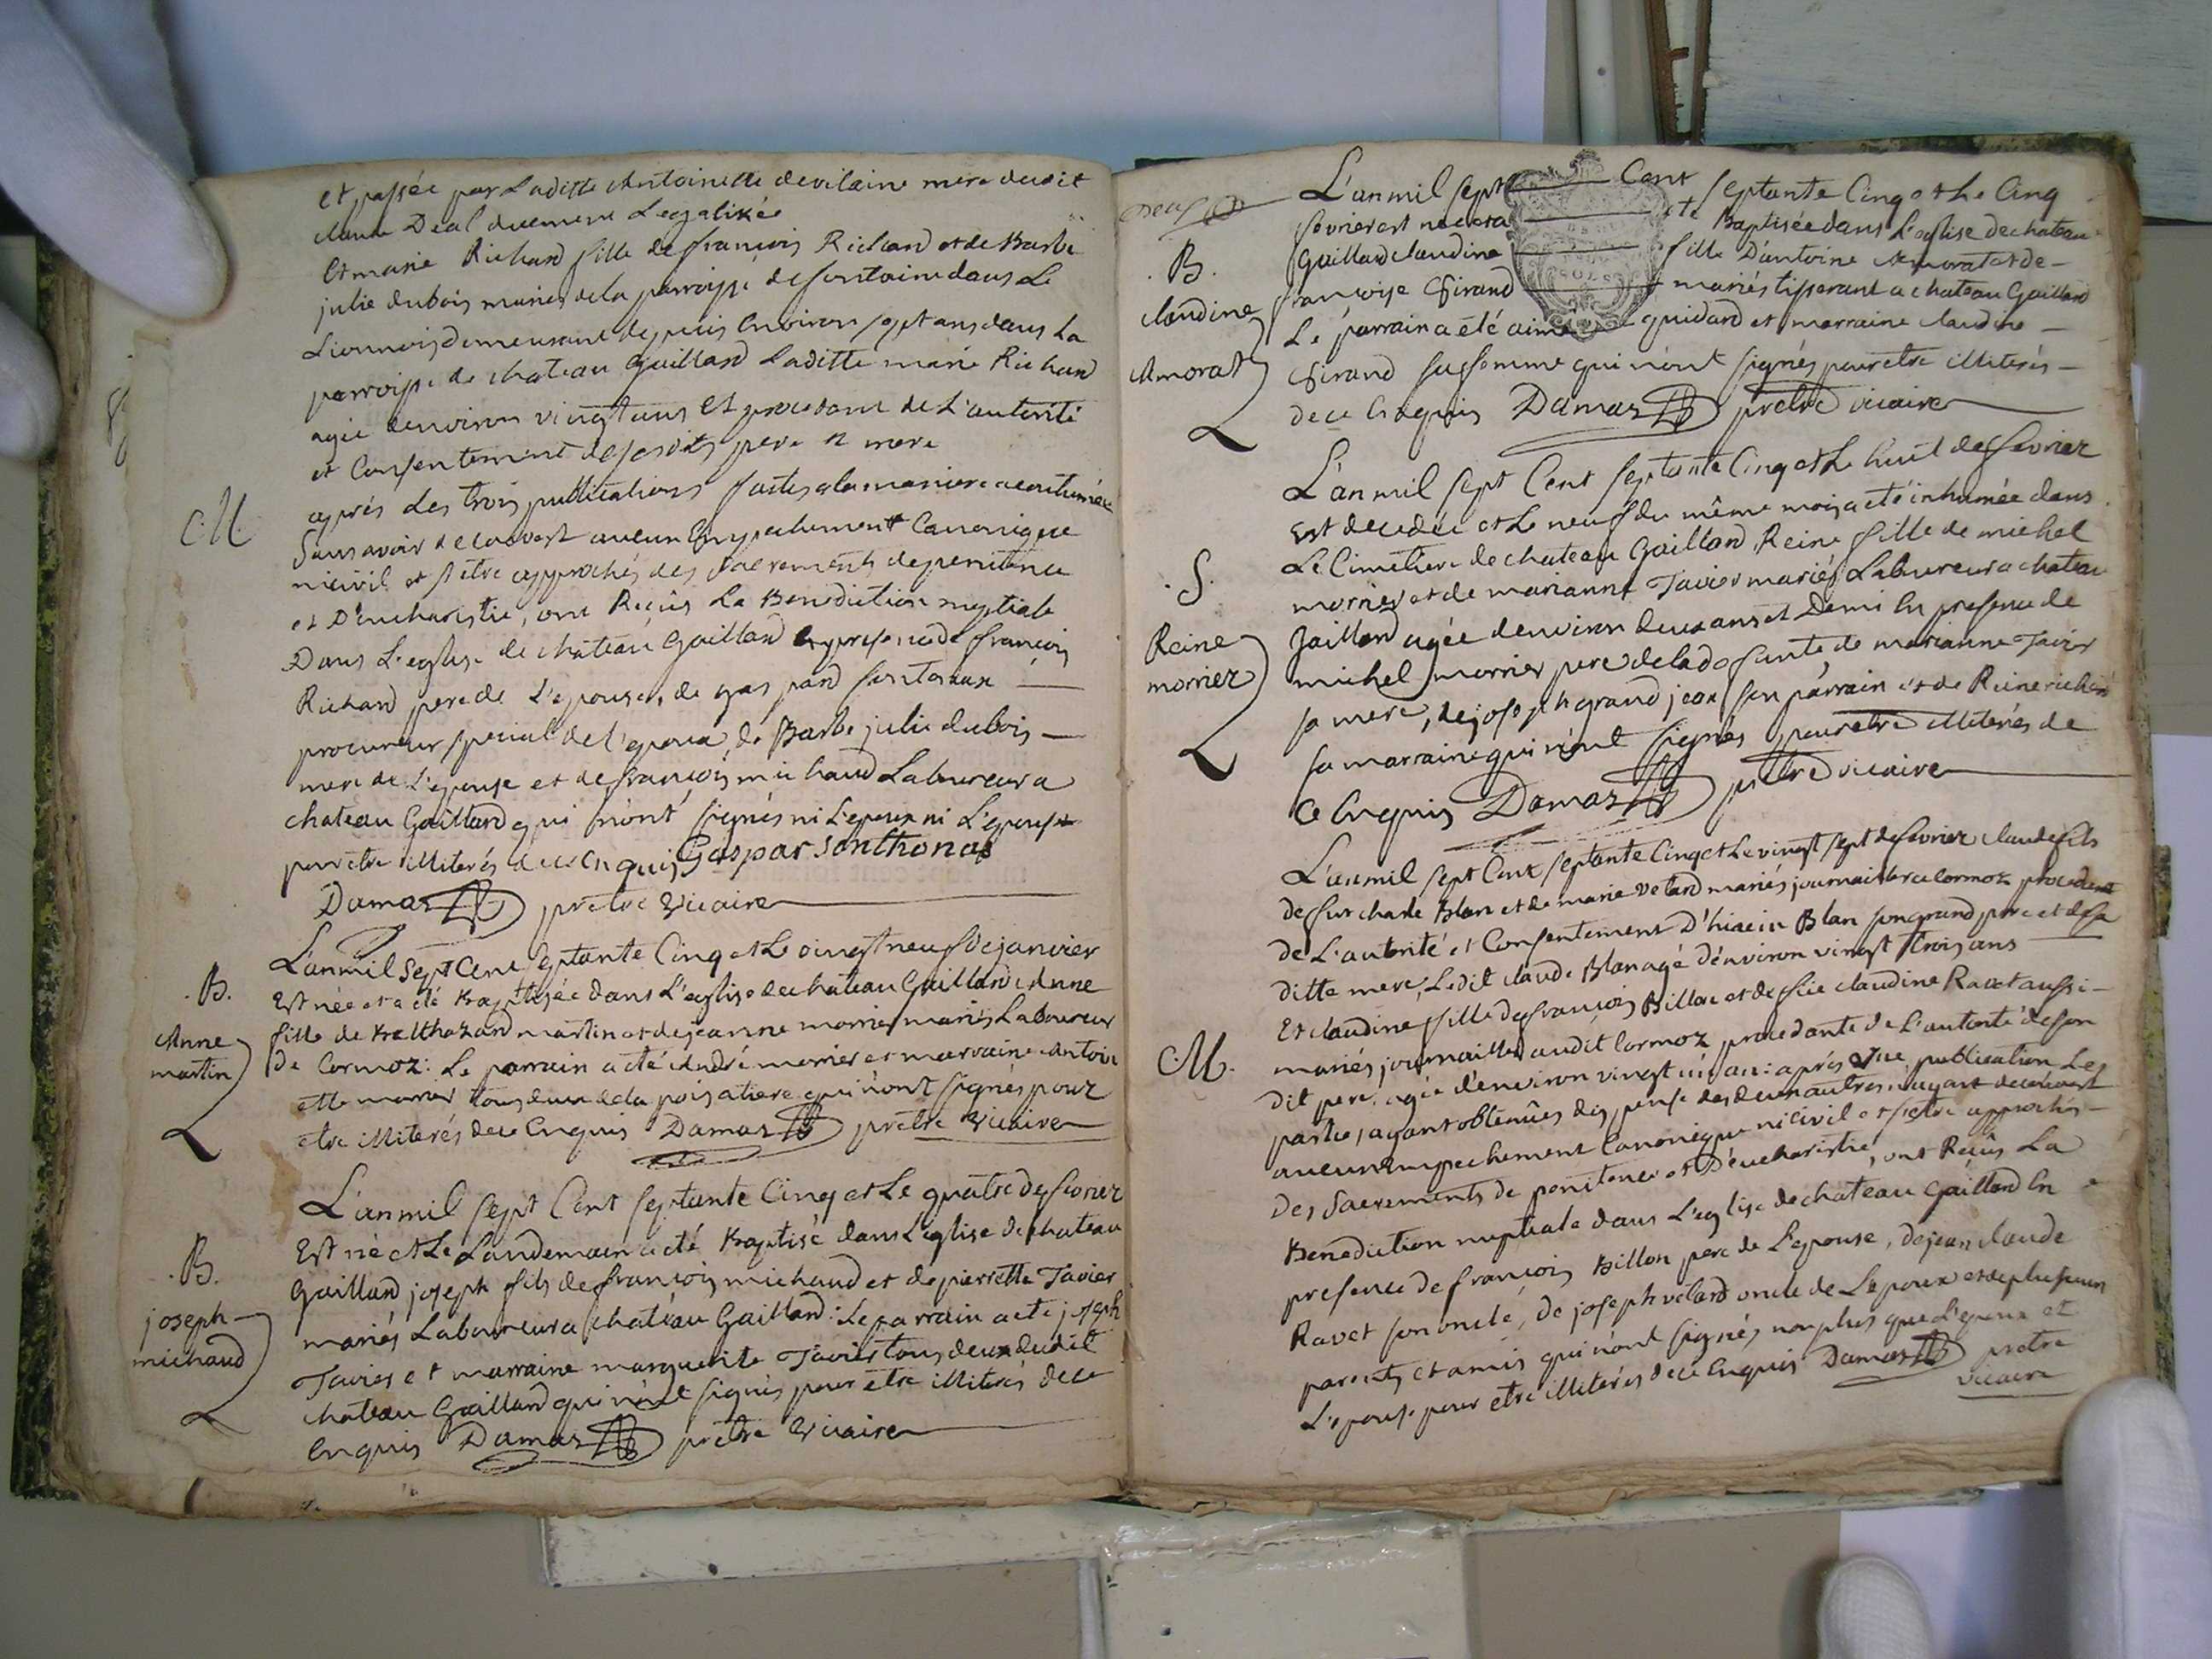 et passée par Laditte Antoinette devilaine mere dudit
claude Déal duement Legalisée
Et marie Richard fille de françois Richard et de Barbe
julie dubois mariés de la parroisse de fontaine dans Le
Lionnois demeurant depuis Environ sept ans dans La
parroisse de chateau Gaillard Laditte marie Richard
agée denviron vingt ans Et procedant de L'autorité
et Consentement de sesdits pere et mere
après Les trois publications faites a la maniere accoutumée
C.M.
Sans avoir découvert aucun Empechement Canonique
ni civil et s'etre approchés des Sacrements de penitence
et D'eucharistie, ont Reçûs La Benediction nuptiale
Dans L'eglise de château Gaillard En presence de françois
Richard pere de L'epouse, de gaspard sontonax
procureur special de l'epoux, de Barbe julie dubois
mere de L'epouse et de françois michaud Laboureur a
chateau Gaillard qui n'ont signés ni L'epoux ni L'epouse
pour etre illiterés de ce Enquis Gaspar Sonthonas
Damaz prêtre Vicaire
L'an mil Sept Cent Septante Cinq et Le vingt neuf de janvier
.B.
Est née et a été Baptisée dans L'eglise de chateau Gaillard Anne
Anne
fille de Balthazard martin et de jeanne morrier mariés Laboureur
martin
de Cormoz: Le parrain a été André morrier et marraine Antoi
ette morrier tous deux de la poisatiere qui n'ont signés pour
etre illiterés de ce Enquis Damaz prêtre Vicaire
L'an mil Sept Cent Septante Cinq et Le quatre de fevrier
Est né et Le Landemain a été Baptisé dans L'eglise de chateau
.B.
Gaillard joseph fils de françois michaud et de pierrette Tavier
joseph
mariés Laboureur a château Gaillard: Le parrain a été joseph
michaud
Tavier et marraine marguerite Tavier tous deux dudit
chateau Gaillard qui n'ont signés pour etre illiterés de ce
Enquis Damaz prêtre Vicaire
L'an mil Sept Cent Septante Cinq et Le Cinq
fevrier est née et a été Baptisée dans L'eglise de chateau
.B.
Gaillard claudine fille D'antoine Amorat et de
claudine
françoise Girand mariés tisserant a chateau Gaillard
Le parrain a été aimé guidard et marraine claudine
Amorat
Girand sa femme qui n'ont signés pour etre illiterés
de ce Enquis Damaz prêtre vicaire
L'an mil Sept Cent Septante Cinq et Le huit de fevrier
Est decedée et Le neuf du même mois a été inhumée dans
.S.
Le Cimetiere de chateau Gaillard Reine fille de michel
morrier et de marianne Tavier mariés Laboureur a chateau
Reine
Gaillard agée denviron deux ans et Demi En presence de
morrier
michel morrier pere de la defunte, de marianne Tavier
sa mere, de joseph grand jean son parrain et de Reine richard
sa marraine qui n'ont signés pour etre illiterés de
ce Enquis Damaz prêtre vicaire
L'an mil Sept Cent Septante Cinq et Le vingt sept de fevrier claude fils
de fut charle Blan et de marie velard mariés journailler a Cormoz procedant
de L'autorité et Consentement D'hiacin Blan son grand pere et de sa
ditte mere, Ledit claude Blan agé d'environ vingt trois ans
Et claudine fille de françois Billon et de fûe claudine Ravet aussi
C.M.
mariés journaillier audit Cormoz procedante de L'autorité de son
dit pere agée d'environ vingt un an: après Une publication Les
parties ayant obtenûes dispense des deux autres n'ayant decouvert
aucun Empechement Canonique ni civil et s'etre approchés
Des Sacrements de penitence et D'eucharistie, ont Reçûs La
Benediction nuptiale dans L'eglise de château Gaillard En
presence de françois Billon pere de L'epouse, de jean claude
Ravet son oncle, de joseph velard oncle de L'epoux et de plusieurs
parents et amis qui n'ont signés non plus que L'epoux et
L'epouse pour etre illiterés de ce Enquis Damaz prêtre
vicaire